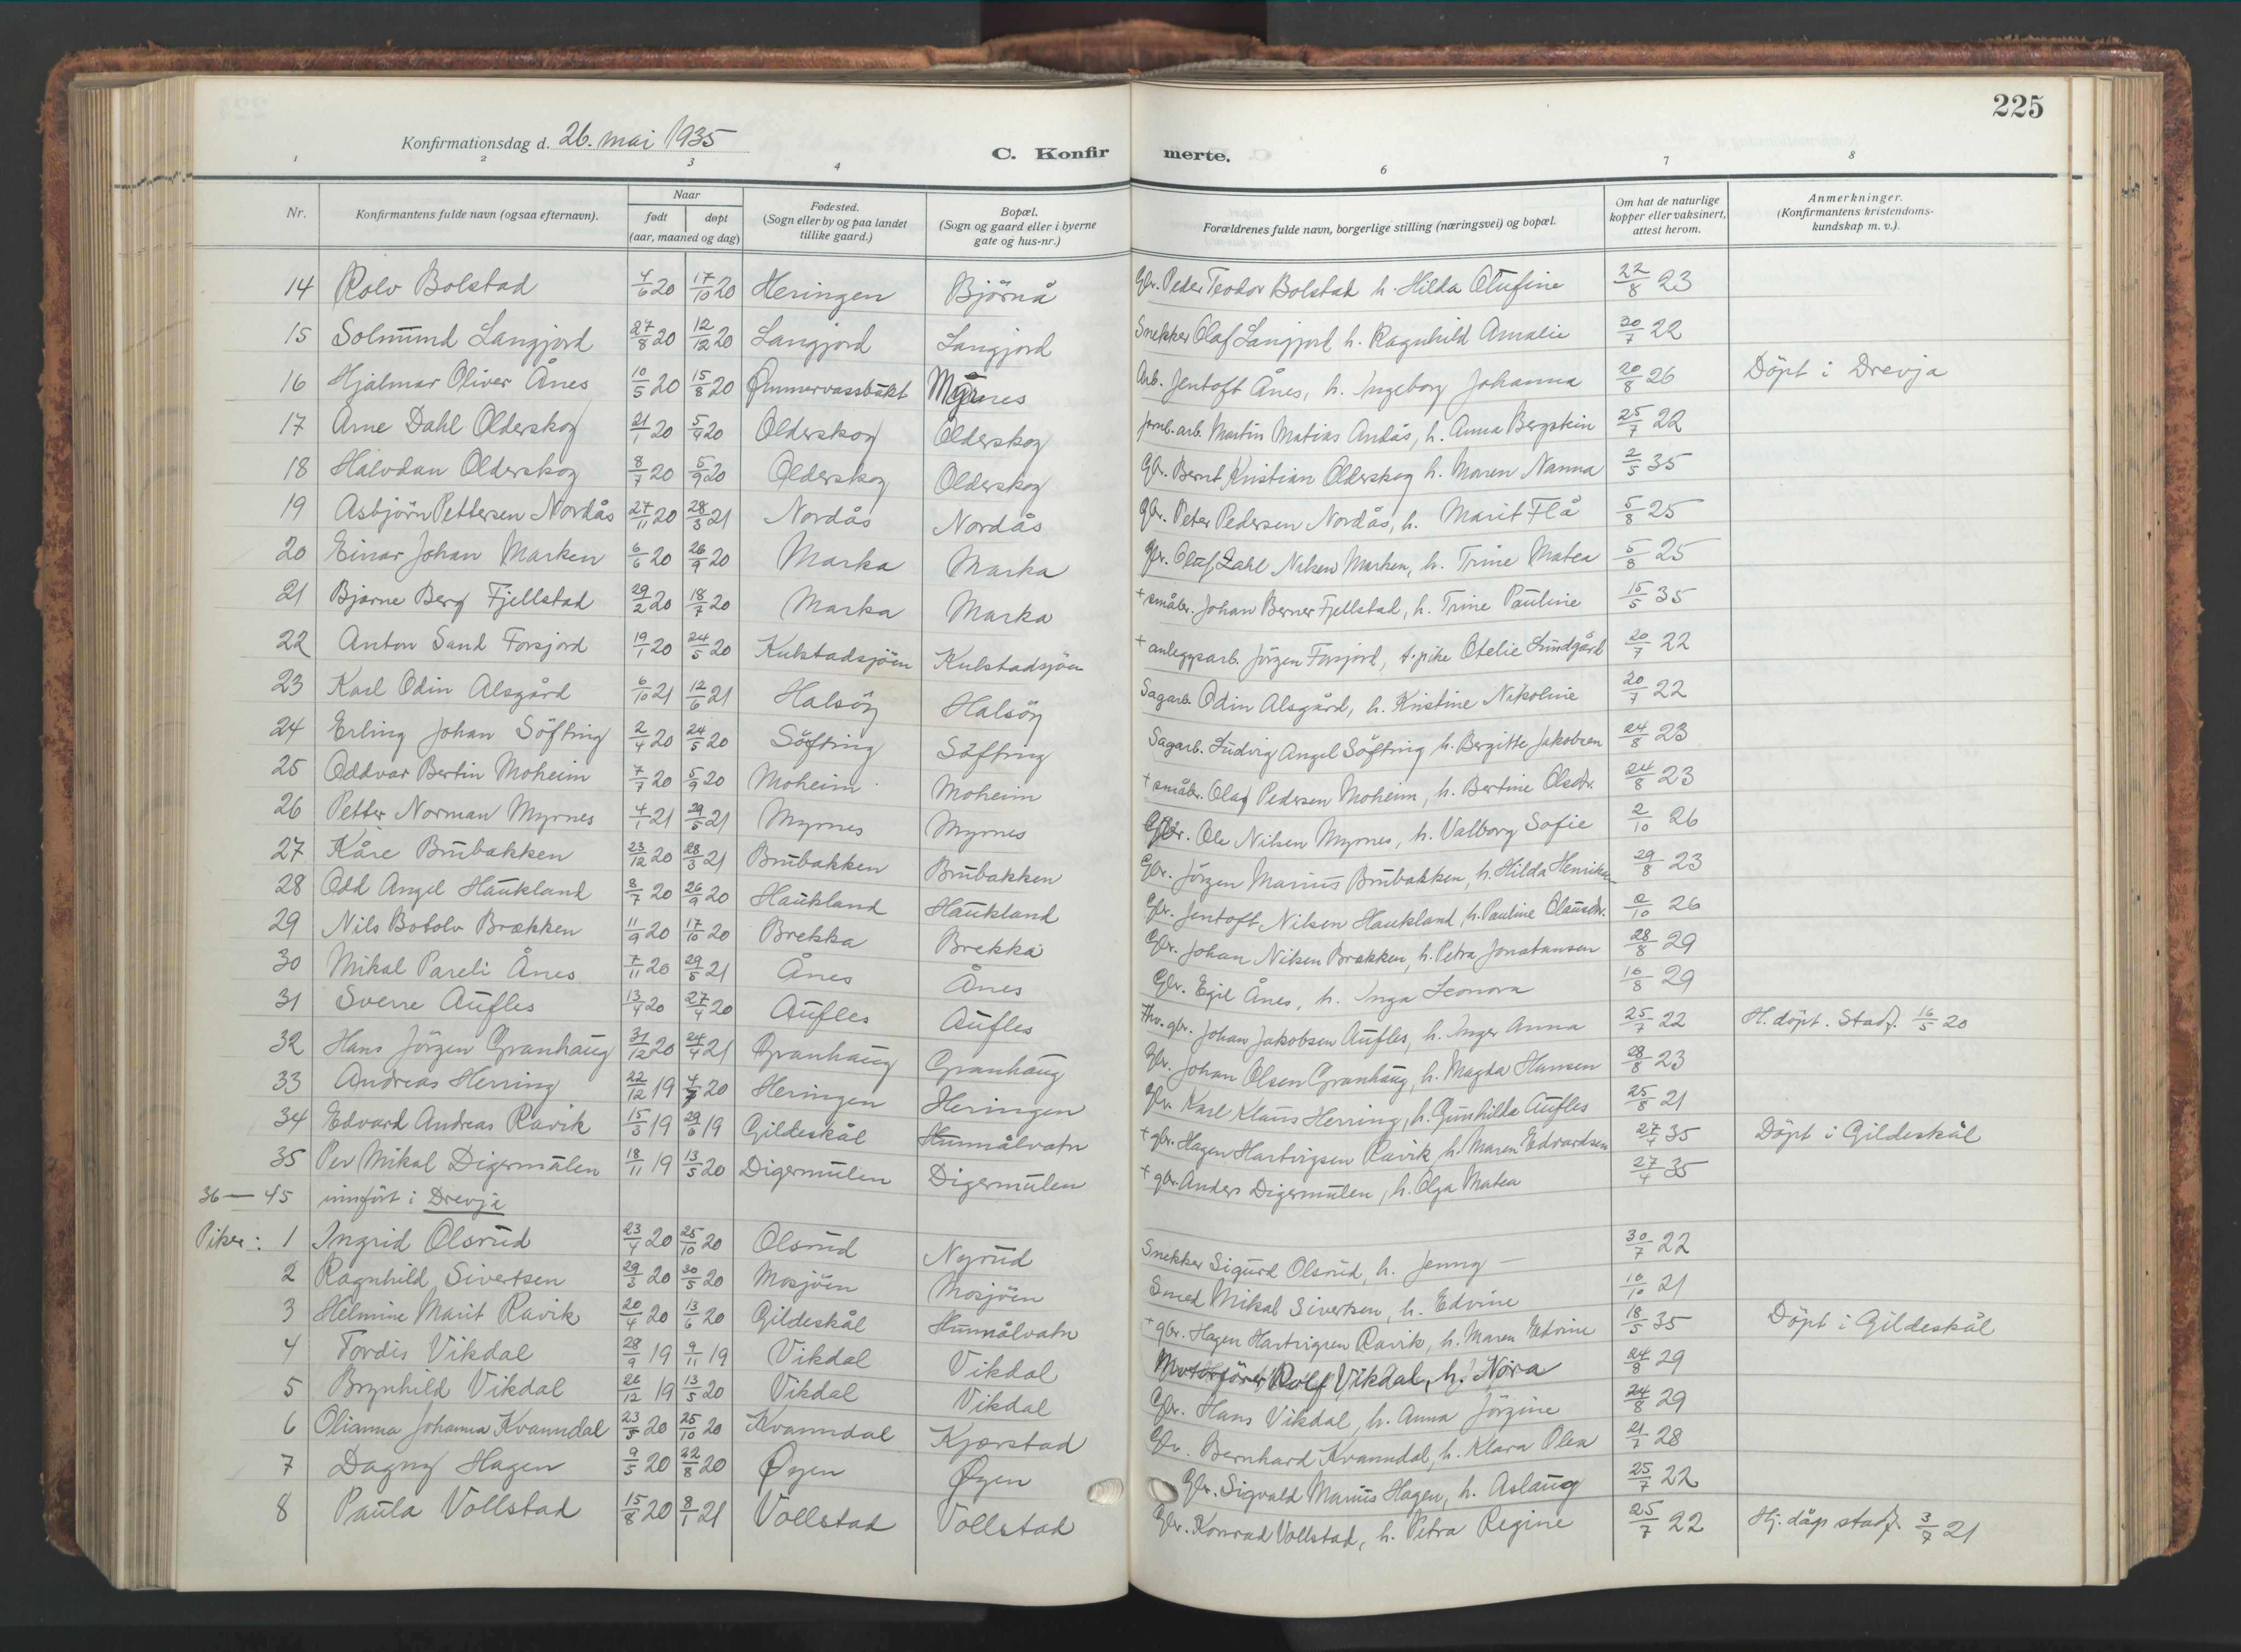 225
Konfirmationsdag d. 26. mai 1935
C. Konfirmerte.
1 2 3 4 6 7 8
Nr. Konfirmantens fulde navn (ogsaa efternavn). Naar født døpt (aar, maaned og dag) Fødested. (Sogn eller by og paa landet tillike gaard.) Bopæl. (Sogn og gaard eller i byerne gate og hus-nr.) Forældrenes fulde navn, borgerlige stilling (næringsvei) og bopæl. Om hat de naturlige kopper eller vaksinert, attest herom. Anmerkninger. (Konfirmantens kristendoms-kundskap m. v.).
14 Rolv Bolstad 4/6 20 17/10 20 Heringen Björnå Gbr. Peder Teodor Bolstad h. Hilda Olufine 22/8 23
15 Solmund Langjord 27/8 20 12/12 20 Langjord Langjord Snekker Olaf Langjord h. Ragnhild Amalie 20/7 22
16 Hjalmar Oliver Ånes 10/5 20 15/8 20 Ømmervassbukt Myrnes Arb. Jentoft Ånes, h. Ingeborg Johanna 20/8 26 Döpt i Drevja
17 Arne Dahl Olderskog 21/1 20 5/4 20 Olderskog Olderskog jernb.arb. Martin Matias Andås, h. Anna Bergstein 25/7 22
18 Halvdan Olderskog 8/7 20 5/9 20 Olderskog Olderskog Gbr. Bernt Kristian Olderskog h. Maren Nanna 2/5 35
19 Asbjörn Pettersen Nordås 27/11 20 28/3 21 Nordås Nordås Gbr. Peter Pedersen Nordås, h. Marit Flå 5/8 25
20 Einar Johan Marken 6/6 20 26/9 20 Marka Marka Gbr. Oluf Zahl Nilsen Marken, h. Trine Matea 5/8 25
21 Bjarne Berg Fjellstad 29/2 20 18/7 20 Marka Marka + småbr. Johan Berner Fjellstad, h. Trine Pauline 15/5 35
22 Anton Sand Forsjord 19/1 20 24/5 20 Kulstadsjöen Kulstadsjöen + anleggsarb. Jörgen Forsjord, t.pike Otelie Lundgård 20/7 22
23 Karl Odin Alsgård 6/10 21 12/6 21 Halsöy Halsöy Sagarb. Odin Alsgård, h. Kristine Nikoline 20/7 22
24 Erling Johan Söfting 2/4 20 24/5 20 Söfting Söfting Sagarb. Ludvig Angel Söfting h. Bergitte Jakobsen 24/8 23
25 Oddvar Bertin Moheim 7/7 20 5/9 20 Moheim Moheim + småbr. Olaf Pedersen Moheim, h. Bertine Olsdtr. 24/8 23
26 Petter Norman Myrnes 4/1 21 29/5 21 Myrnes Myrnes Gbr. Ole Nilsen Myrnes, h. Valborg Sofie 2/10 26
27 Kåre Brubakken 23/12 20 28/3 21 Brubakken Brubakken Gbr. Jörgen Marius Brubakken, h. Hilda 29/8 23
28 Odd Angel Haukland 8/7 20 26/9 20 Haukland Haukland Gbr. Jentoft Nilsen Haukland, h. Pauline Clausdtr. 2/10 26
29 Nils Botolv Brækken 11/9 20 17/10 20 Brekka Brekka Gbr. Johan Nilsen Brækken, h. Petra Jonatansen 28/8 29
30 Mikal Pareli Ånes 7/11 20 29/5 21 Ånes Ånes Gbr. Egil Ånes, h. Inga Leonora 16/8 29
31 Sverre Aufles 13/4 20 27/4 20 Aufles Aufles Fhv. gbr. Johan Jakobsen Aufles, h. Inger Anna 25/7 22 H. döpt. Stadf. 16/5 20
32 Hans Jörgen Granhaug 31/12 20 24/4 21 Granhaug Granhaug Gbr. Johan Olsen Granhaug, h. Magda Hansen 28/8 23
33 Andreas Herring 22/12 19 20 Heringen Heringen Gbr. Karl Klaus Herring, h. Gunhilda Aufles 25/8 21
34 Edvard Andreas Ravik 15/3 19 29/6 19 Gildeskål Hunnålvatn + gbr. Hagen Hartvigsen Ravik, h. Maren Edvardsen 27/4 35 Döpt i Gildeskål
35 Per Mikal Digermulen 18/11 19 13/5 20 Digermulen Digermulen + gbr. Anders Digermulen, h. Olga Matea 27/4 35
36 — 45 innfört i Drevja
Piker: 1 Ingrid Olsrud 23/4 20 25/10 20 Olsrud Nyrud Snekker Sigurd Olsrud, h. Jenny — 30/7 22
2 Ragnhild Sivertsen 29/3 20 30/5 20 Mosjöen Mosjöen Smed Mikal Sivertsen, h. Edvine 16/10 21
3 Helmine Marit Ravik 20/4 20 13/6 20 Gildeskål Hunnålvatn + gbr. Hagen Hartvigsen Ravik, h. Maren Edvine 18/5 35 Döpt i Gildeskål
4 Tordis Vikdal 28/9 19 9/11 19 Vikdal Vikdal Motorförer Rolf Vikdal, h. Nora 24/8 29
5 Brynhild Vikdal 26/12 19 13/5 20 Vikdal Vikdal Gbr. Hans Vikdal, h. Anna Jörgine 24/8 29
6 Olianna Johanna Kvanndal 23/5 20 25/10 20 Kvanndal Kjærstad Gbr. Bernhard Kvanndal, h. Klara Olea 21/7 28
7 Dagny Hagen 9/5 20 22/8 20 Øyen Øyen Gbr. Sigvald Marius Hagen, h. Aslaug 25/7 22
8 Paula Vollstad 15/8 20 8/1 21 Vollstad Vollstad Gbr. Konrad Vollstad, h. Petra Regine 25/7 22 Hj. dåp stadf. 3/7 21